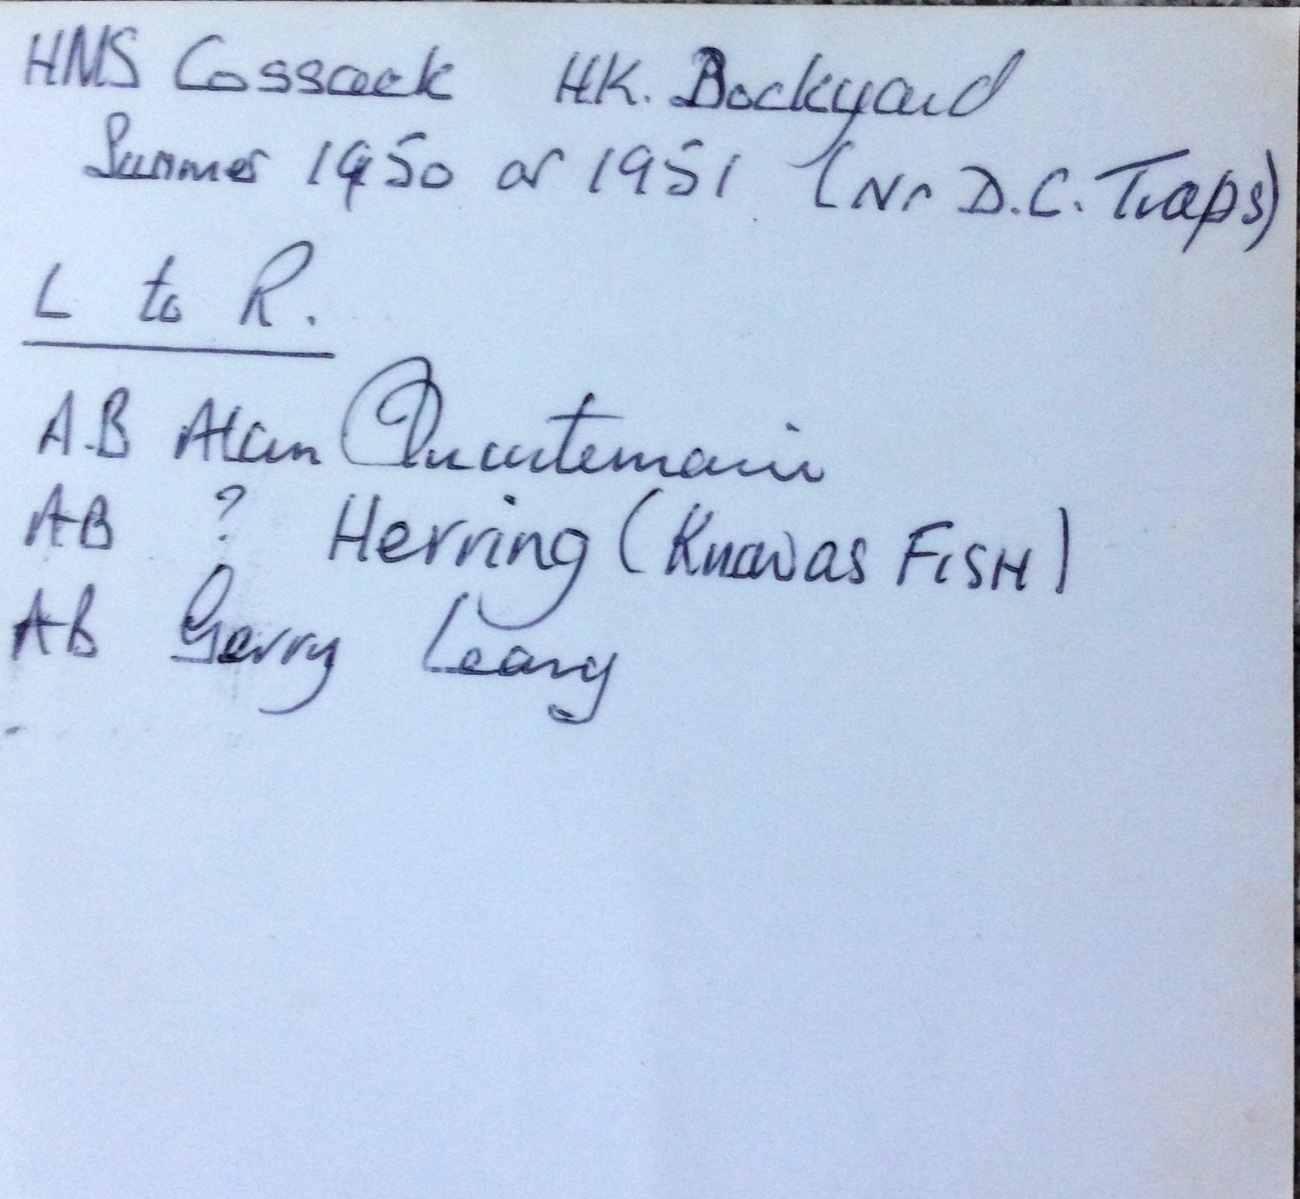 HMS Cossack HK. Dockyard
Summer 1950 or 1951 (Nr D.C. Traps)
L to R.
A.B Alan Quartemain
AB ? Herring (Know as FISH)
AB Gerry Leary